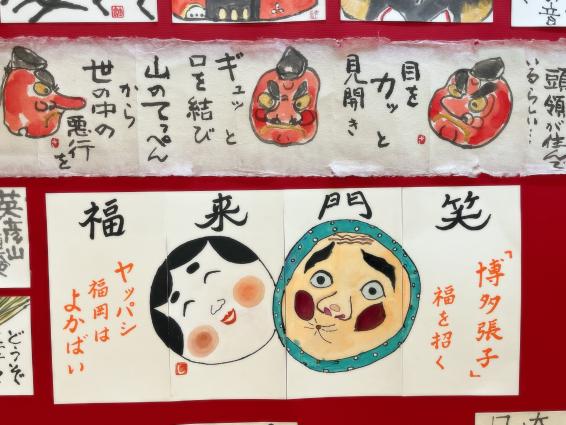 頭領が住んで
いるらしい…
目を
カッと
見開き
ギュッと
口を結び
山のてっぺん
から
世の中の
悪行を
笑門来福
「博多張子」
福を招く
ヤッパシ
福岡は
よかばい
英彦山
どうぞ